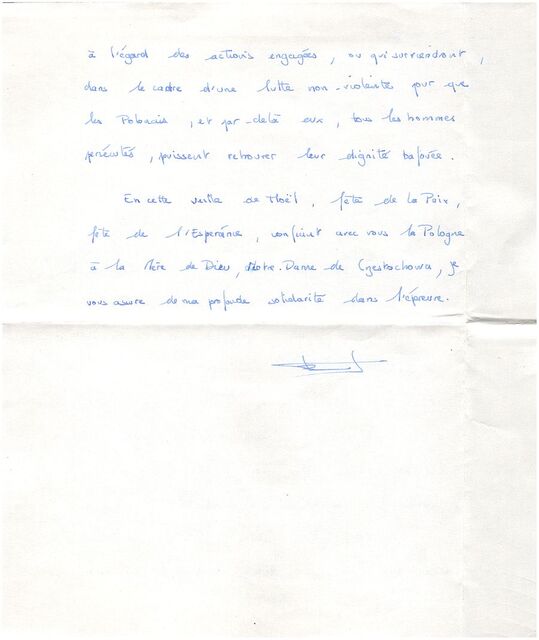 à l'égard des actions engagées, ou qui surviendront,
dans le cadre d'une lutte non-violente pour que
les Polonais, et par-delà eux, tous les hommes
persécutés, puissent retrouver leur dignité bafouée.
En cette veille de Noël, fête de la Paix,
fête de l'Espérance, confiant avec vous la Pologne
à la Mère de Dieu, Notre-Dame de Czestochowa, je
vous assure de ma profonde solidarité dans l'épreuve.